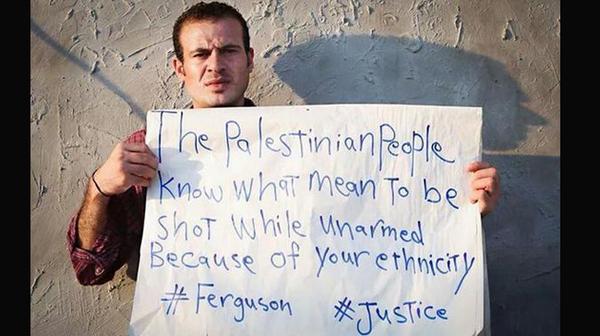 The Palestinian People
Know what mean To be
shot while unarmed
Because of your ethnicity
#Ferguson #Justice